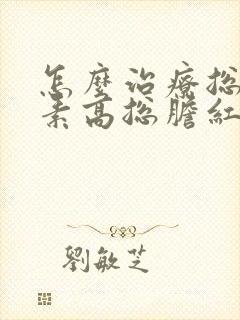 怎麼治療總
素高總膽紅
劉敏芝